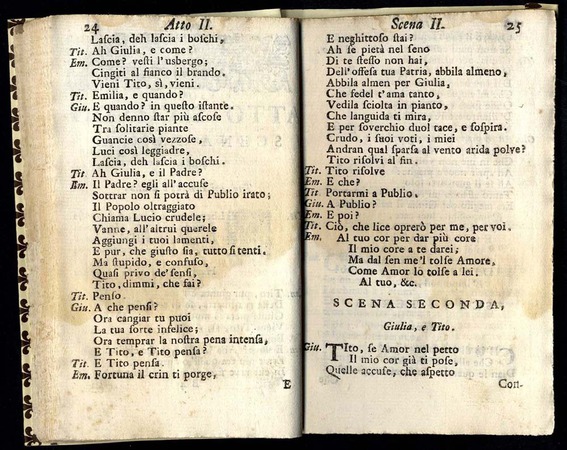 24 Atto II.
Lascia, deh lascia i boschi,
Tit. Ah Giulia, e come?
Em. Come? vesti l'usbergo;
Cingiti al fianco il brando.
Vieni Tito, sì, vieni.
Tit. Emilia, e quando?
Giu. E quando? in questo istante.
Non denno star più ascose
Tra solitarie piante
Guancie così vezzose,
Luci così leggiadre,
Lascia, deh lascia i boschi.
Tit. Ah Giulia, e il Padre?
Em. Il Padre? egli all'accuse
Sottrar non si potrà di Publio irato;
Il Popolo oltraggiato
Chiama Lucio crudele;
Vanne, all'altrui querele
Aggiungi i tuoi lamenti,
E pur, che giusto sia, tutto si tenti.
Ma stupido, e confuso,
Quasi privo de'sensi,
Tito, dimmi, che fai?
Tit. Penso.
Giu. A che pensi?
Ora cangiar tu puoi
La tua sorte infelice;
Ora temprar la nostra pena intensa,
E Tito, e Tito pensa?
Tit. E Tito pensa.
Em. Fortuna il crin ti porge,
E
Scena II. 25
E neghittoso stai?
Ah se pietà nel seno
Di te stesso non hai,
Dell'offesa tua Patria, abbila almeno,
Abbila almen per Giulia,
Che fedel t'ama tanto,
Vedila sciolta in pianto,
Che languida ti mira,
E per soverchio duol tace, e sospira.
Crudo, i suoi voti, i miei
Andran qual sparsa al vento arida polve?
Tito risolvi al fin.
Tit. Tito risolve
Em. E che?
Tit. Portarmi a Publio.
Giu. A Publio?
Em. E poi?
Tit. Ciò, che lice oprerò per me, per voi.
Em. Al tuo cor per dar più core
Il mio core a te darei;
Ma dal sen me'l tolse Amore,
Come Amor lo tolse a lei.
Al tuo, &c.
SCENA SECONDA,
Giulia, e Tito.
Giu. TIto, se Amor nel petto
Il mio cor già ti pose,
Quelle accuse, che aspetto
Con-